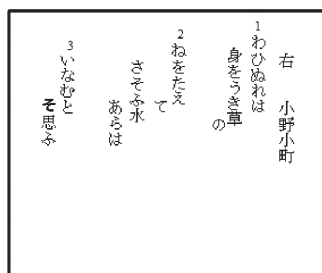 右　小野小町
1わひぬれは
身をうき草
の
2ねをたえ
て
さそふ水
あらは
3いなむと
そ思ふ